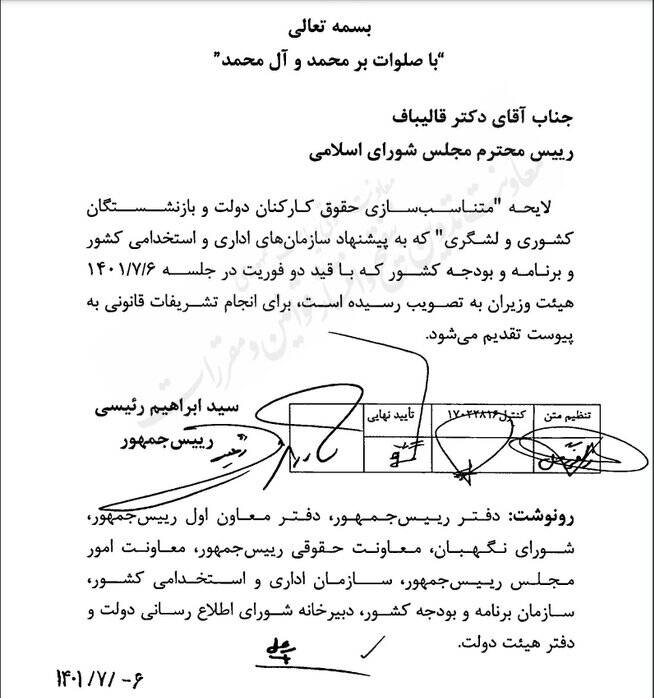 بسمه تعالی
"با صلوات بر محمد و آل محمد"
جناب آقای دکتر قالیباف
رییس محترم مجلس شورای اسلامی
لایحه "متناسب‌سازی حقوق کارکنان دولت و بازنشستگان
کشوری و لشگری" که به پیشنهاد سازمان‌های اداری و استخدامی کشور
و برنامه و بودجه کشور که با قید دو فوریت در جلسه ۱۴۰۱/۷/۶
هیئت وزیران به تصویب رسیده است، برای انجام تشریفات قانونی به
پیوست تقدیم می‌شود.
تنظیم متن
کنترل ۱۷۰۲۲۸۱۶
تأیید نهایی
سید ابراهیم رئیسی
رییس‌جمهور
رونوشت: دفتر رییس‌جمهور، دفتر معاون اول رییس‌جمهور،
شورای نگهبان، معاونت حقوقی رییس‌جمهور، معاونت امور
مجلس رییس‌جمهور، سازمان اداری و استخدامی کشور،
سازمان برنامه و بودجه کشور، دبیرخانه شورای اطلاع رسانی دولت و
دفتر هیئت دولت.
۱۴۰۱/۷/-۶